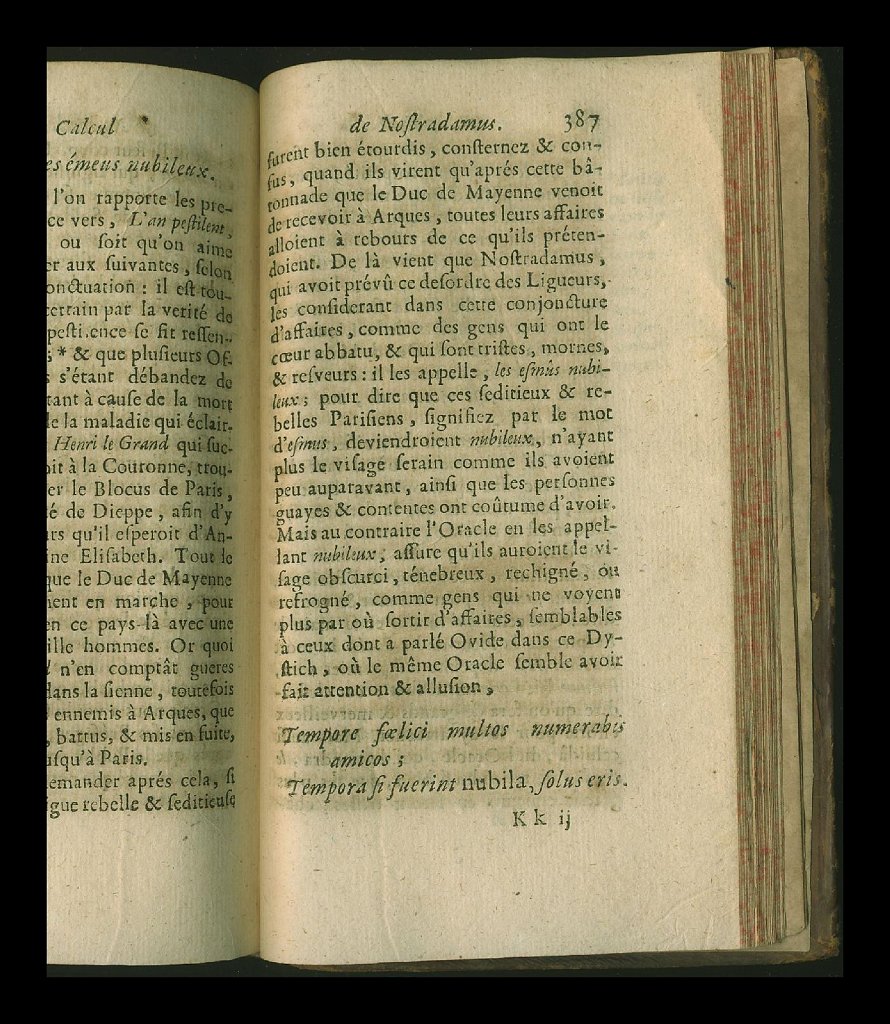 Calcul
es émeus nubileux.
l'on rapporte les pre-
ce vers, L'an pestilent,
ou ſoit qu'on aime
er aux ſuivantes, ſelon
onctuation : il est tou-
certain par la verité de
ſe fit reſſen-
;* & que pluſieurs Of-
s'étant débandez de
tant à cauſe de la mort
le la maladie qui éclair.
Henri le Grand qui ſuc-
oit à la Couronne, trou-
er le Blocus de Paris,
é de Dieppe, afin d'y
urs qu'il eſperoit d'An-
ine Eliſabeth. Tout le
que le Duc de Mayenne
ment en marche, pour
en ce pays-là avec une
ille hommes. Or quoi
n'en comptât gueres
dans la ſienne, toutefois
ennemis à Arques, que
, battus, & mis en fuite,
uſqu'à Paris.
emander aprés cela, ſi
igue rebelle & ſeditieuſe
de Noſtradamus. 387
furent bien étourdis, conſternez & con-
fus, quand ils virent qu'aprés cette bâ-
tonnade que le Duc de Mayenne venoit
de recevoir à Arques, toutes leurs affaires
alloient à rebours de ce qu'ils préten-
doient. De là vient que Noſtradamus,
qui avoit prévû ce deſordre des Ligueurs,
les conſiderant dans cette conjoncture
d'affaires, comme des gens qui ont le
cœur abbatu, & qui ſont triſtes, mornes,
& reſveurs : il les appelle, les eſmûs nubi-
leux; pour dire que ces ſeditieux & re-
belles Pariſiens, ſignifiez par le mot
d'eſmus, deviendroient nubileux, n'ayant
plus le viſage ſerain comme ils avoient
peu auparavant, ainſi que les perſonnes
guayes & contentes ont coûtume d'avoir.
Mais au contraire l'Oracle en les appel-
lant nubileux, aſſure qu'ils auroient le vi-
ſage obſcurci, ténebreux, rechigné, ou
refrogné, comme gens qui ne voyent
plus par où ſortir d'affaires, ſemblables
à ceux dont a parlé Ovide dans ce Dy-
ſtich, où le même Oracle ſemble avoir
fait attention & alluſion,
Tempore fœlici multos numerabis
amicos ;
Tempora ſi fuerint nubila, ſolus eris.
K k ij